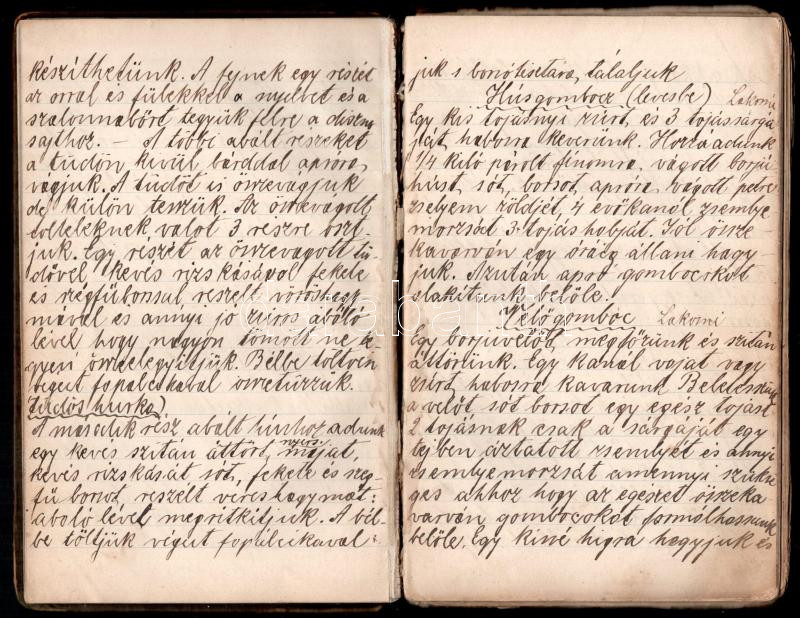 készíthetünk. A fejnek egy részét
az orral és fülekkel a nyelvet és a
szalonnabőrt tegyük félre a diszno
sajthoz. — A többi abált részeket
a tüdőn kivül bárddal apróra
vágjuk. A tüdőt is összevágjuk
de külön tesszük. Az összevágott
tölteléknek valót 3 részre oszt-
juk. Egy részét az összevagott tü-
dővel kevés rizskásával fekete
és szegfüborssal reszelt vöröshagy-
mával és annyi jó zsiros abáló
lével hogy nagyon tömött ne le-
gyen összeelegyitjük. Bélbe töltvén
végeit fapálcikával össetűzzük.
Tüdős hurka)
A második rész abált húshoz adunk
egy kevés szitán áttört nyers májat,
kevés rizskását sót, fekete és szeg-
fű borsot, reszelt vereshagymát:
abaló lével megritkitjuk. A bél-
be töltjük végeit fapálcikával:
juk s borsótésztára, tálaljuk
Húsgombócz (levesbe) Lakomi
Egy kis tojásnyi zsirt, és 3 tojássárgá
ját habosra keverünk. Hozzáadunk
1/4 kiló párolt finomra, vágott borju
húst, sót, borsot, apróra, vágott petre
zselyem zöldjét, 4 evőkanál zsemlye
morzsát 3 tojás habját. Jól össze-
kavarván egy óráig állani hagy
juk. Azután apró gombócokat
alakítunk belőle.
Velőgombóc Lakomi
Egy borjuvelőt, megfőzünk és szitán
áttörünk. Egy kanál vajat vagy
zsirt, habosra kavarunk Beletesszük
a velőt, sót borsot egy egész tojást
2 tojásnak csak a sárgáját egy
tejben áztatott zsemlyét és annyi
zsemlyemorzsát amennyi szüksé
ges ahhoz hogy az egészet összeka-
varván gombócokat formálhassunk
belőle. Egy kissé higra hagyjuk és
darabanth